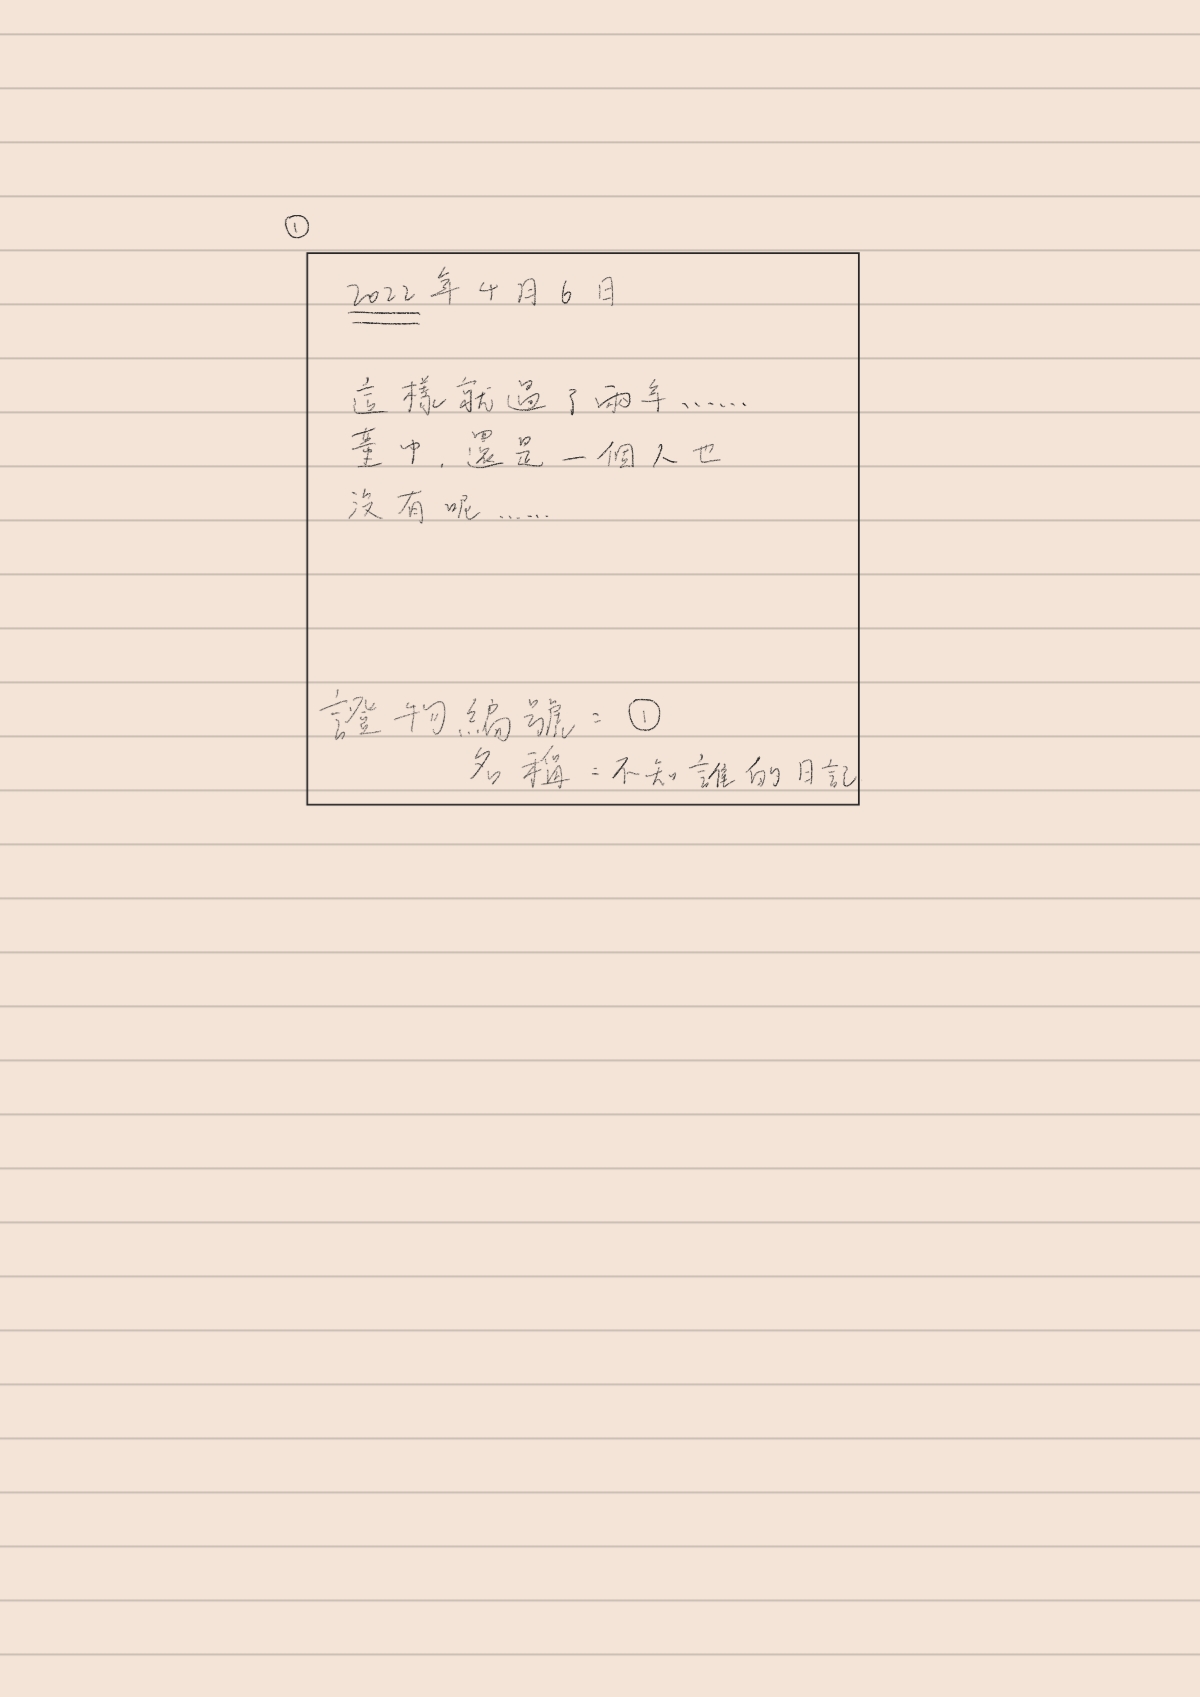 ①
2022年4月6日
這樣就過了兩年……
臺中,還是一個人也
沒有呢……
證物編號:①
名稱:不知誰的日記